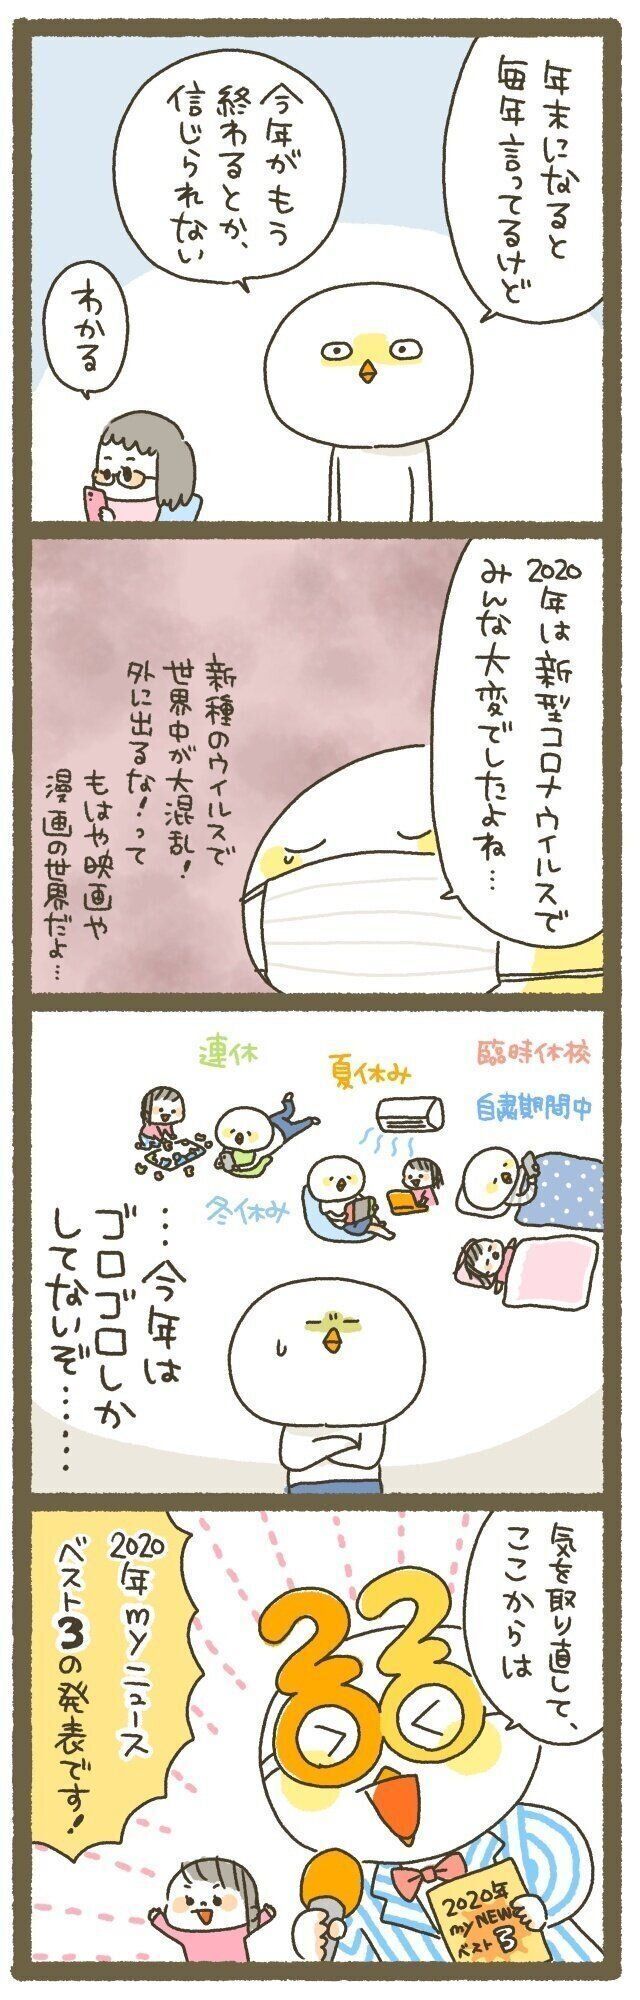 年末になると
毎年言ってるけど
今年がもう
終わるとか、
信じられない
わかる
2020
年は新型コロナウイルスで
みんな大変でしたよね…
新種のウイルスで
世界中が大混乱!
外に出るな!って
もはや映画や
漫画の世界だよ…
臨時休校
自粛期間中
夏休み
連休
冬休み
…今年は
ゴロゴロしか
してないぞ……
気を取り直して、
ここからは
2020
年myニュース
ベスト3の発表です!
2020年
myNEWS
ベスト3